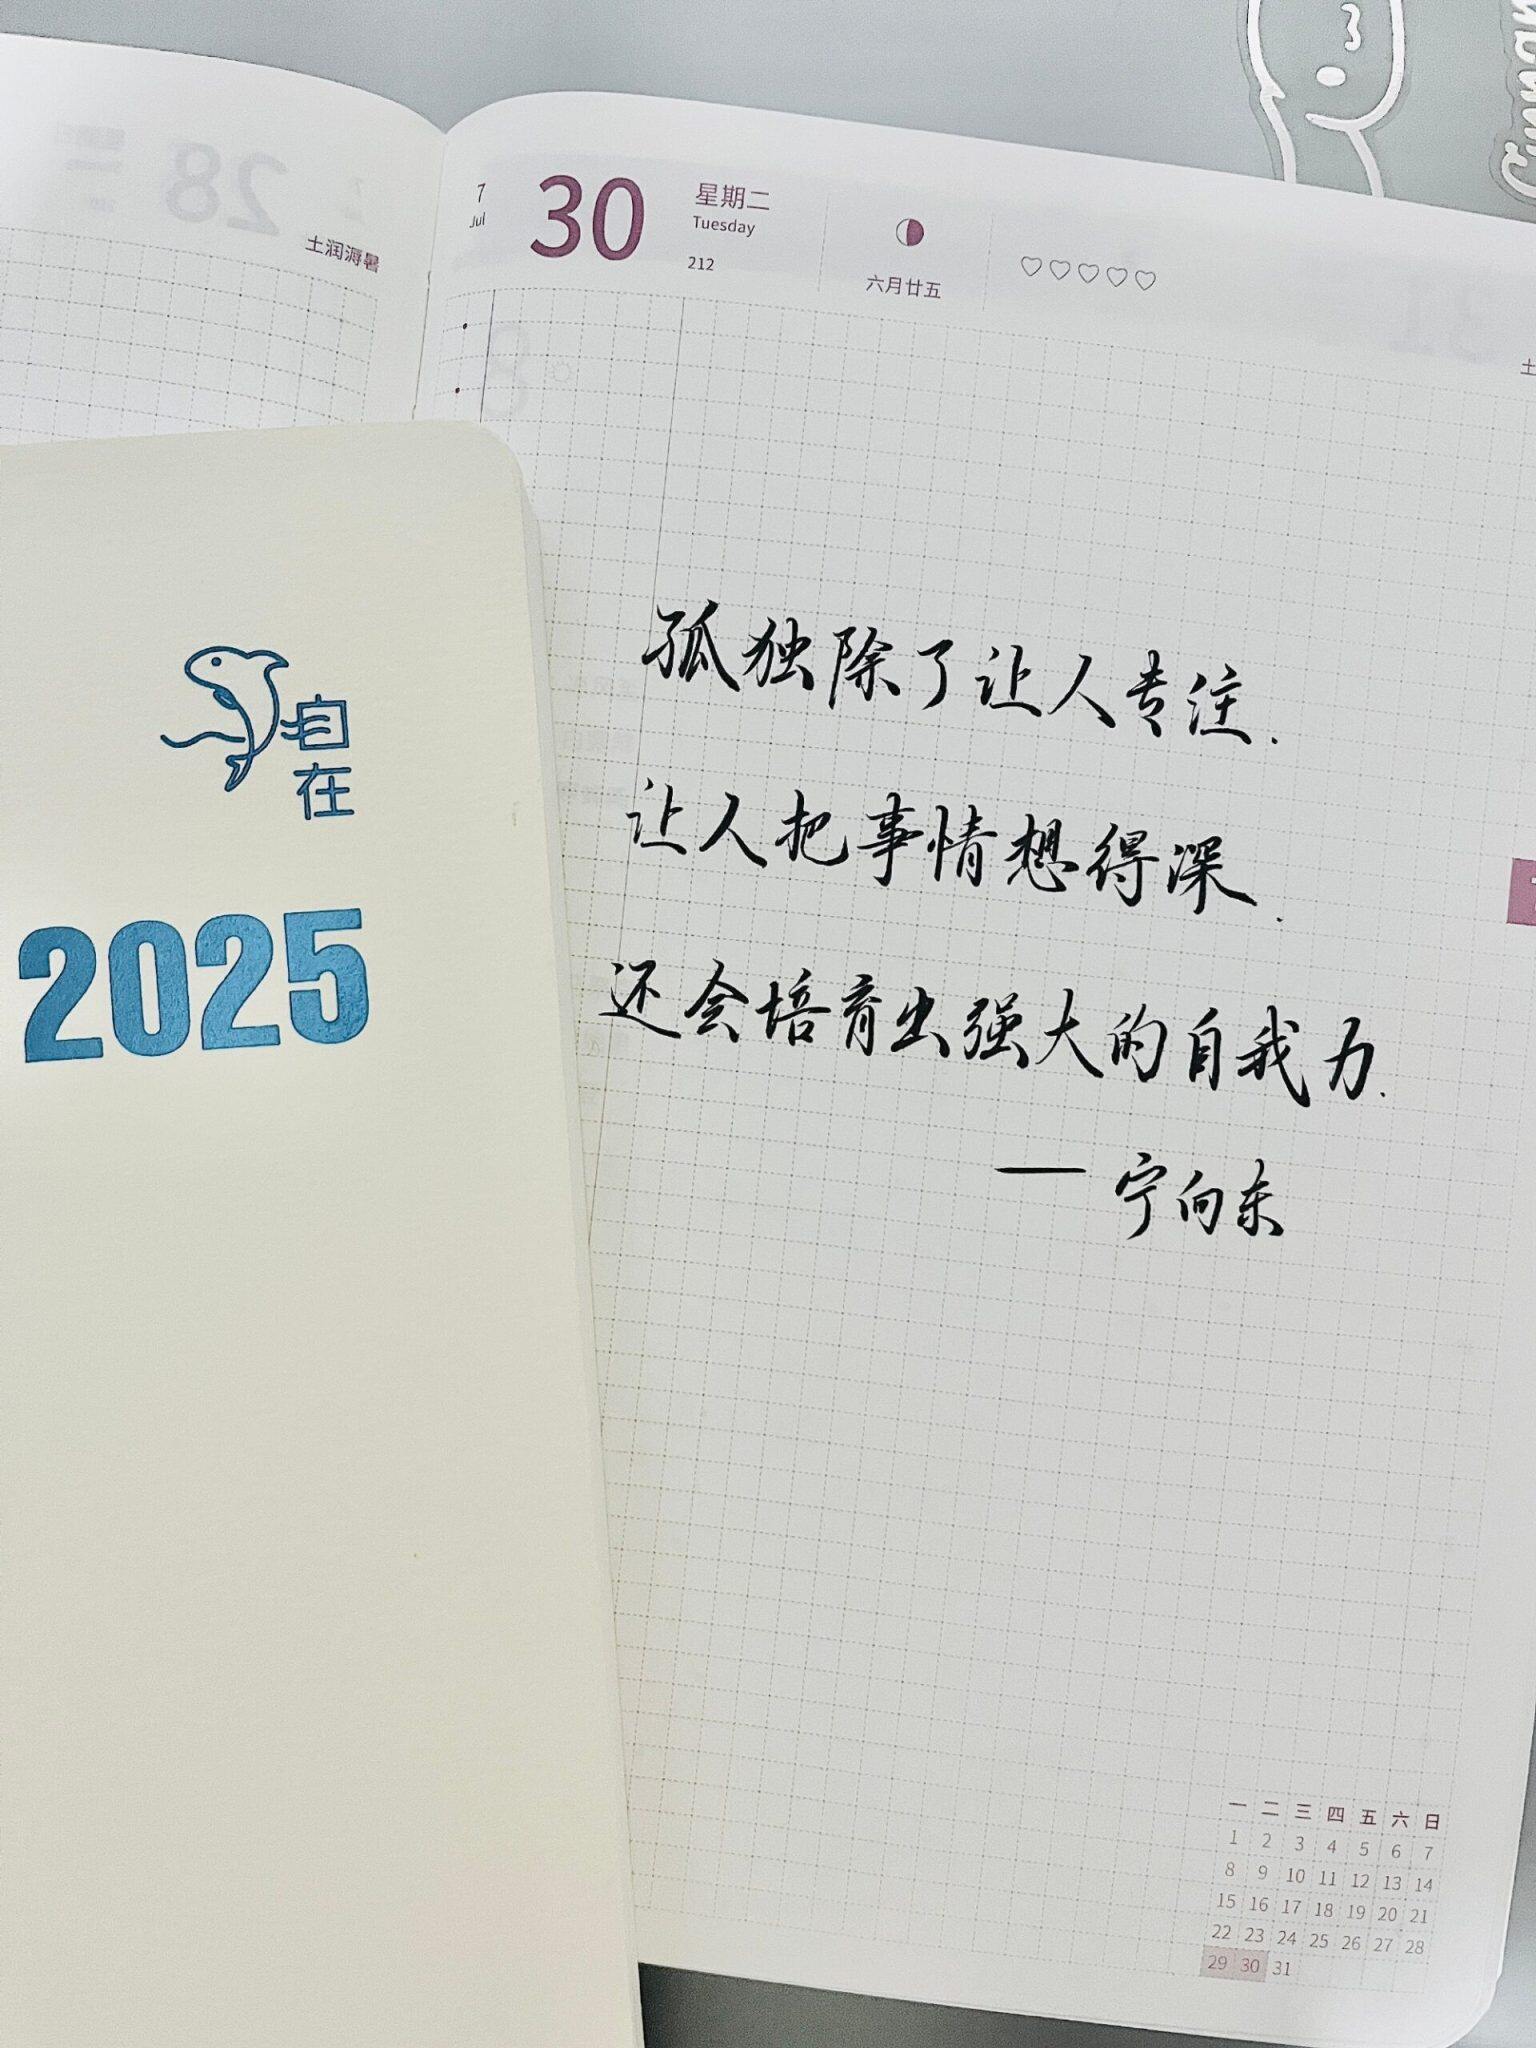 土润溽暑
7
Jul
30
星期二
Tuesday
212
六月廿五
孤独除了让人专注.
让人把事情想得深.
还会培育出强大的自我力.
— 宁向东
自在
2025
一 二 三 四 五 六 日
1 2 3 4 5 6 7
8 9 10 11 12 13 14
15 16 17 18 19 20 21
22 23 24 25 26 27 28
29 30 31